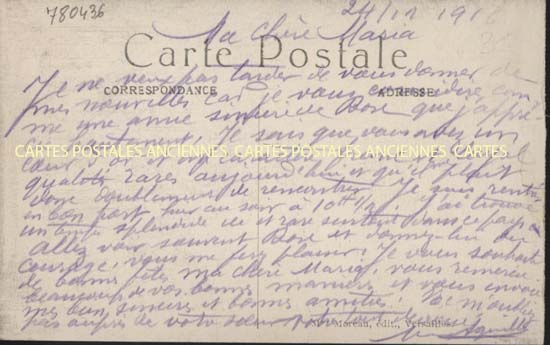 780436
24/12 1916
Ma Chère Maria
Carte Postale
Je ne veux pas tarder de vous donner de
CORRESPONDANCE
ADRESSE
mes nouvelles car je vous considère com
me une amie sincère de Rose que j'appré
Je sais que vous avez un
CARTES POSTALES ANCIENNES CARTES POSTALES ANCIENNES CARTES
qualités rares aujourd'hui et qu'il plait
donc doublement de rencontrer. Je suis rentré
en bon port hier au soir à 10h 1/2. J'ai trouvé
un temps splendide et rare surtout dans ce pays
Allez voir souvent Rose et donnez-lui du
courage, vous me ferez plaisir! Je vous souhaite
de bonnes fêtes ma chère Maria, vous remercie
beaucoup de vos bonnes manières et vous envoie
mes bons, sincères et bonnes amitiés! Ne m'oubliez
pas auprès de votre sœur
Moreau, édit., Versailles